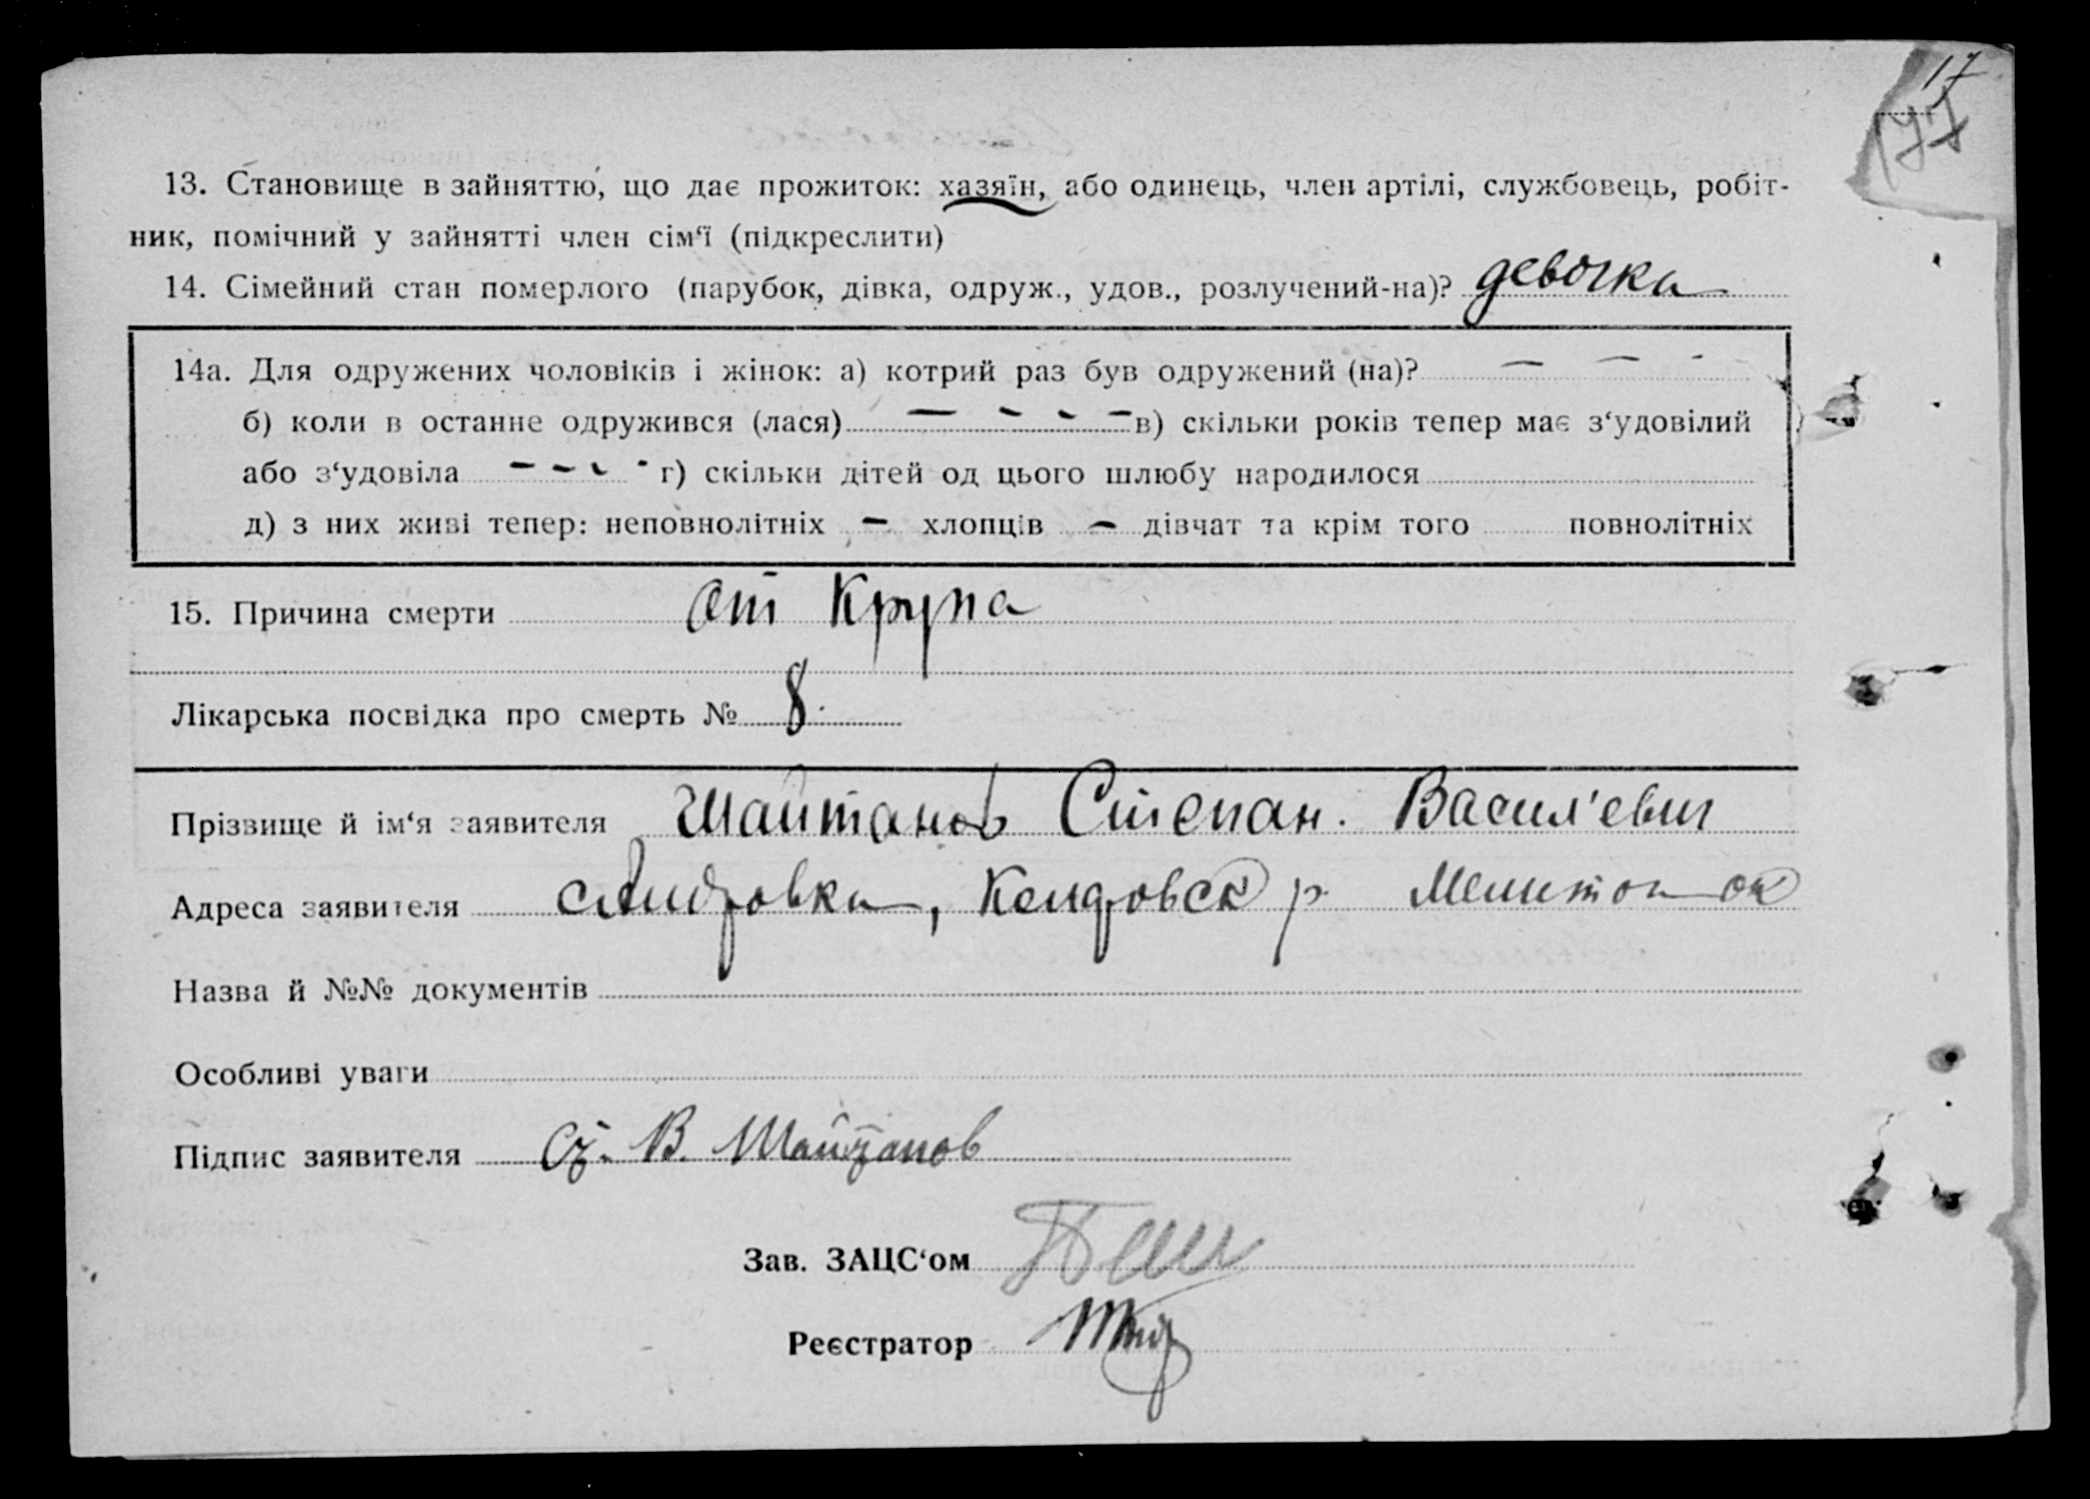 17
177
13. Становище в зайняттю, що дає прожиток: хазяїн, або одинець, член артілі, службовець, робіт-
ник, помічний у зайнятті член сім‘ї (підкреслити)
14. Сімейний стан померлого (парубок, дівка, одруж., удов., розлучений-на)? девочка
14а. Для одружених чоловіків і жінок: а) котрий раз був одружений (на)? — — -
б) коли в останнє одружився (лася) — - - — в) скільки років тепер має з‘удовілий
або з‘удовіла - - - - г) скільки дітей од цього шлюбу народилося
д) з них живі тепер: неповнолітніх — хлопців — дівчат та крім того повнолітніх
15. Причина смерти от Крупа
Лікарська посвідка про смерть № 8.
Прізвище й ім‘я заявителя Шайтанов Степан. Васил'евич
Адреса заявителя р. ок
Назва й №№ документів
Особливі уваги
Підпис заявителя Ст. В. Шайтанов
Зав. ЗАЦС‘ом
Реєстратор